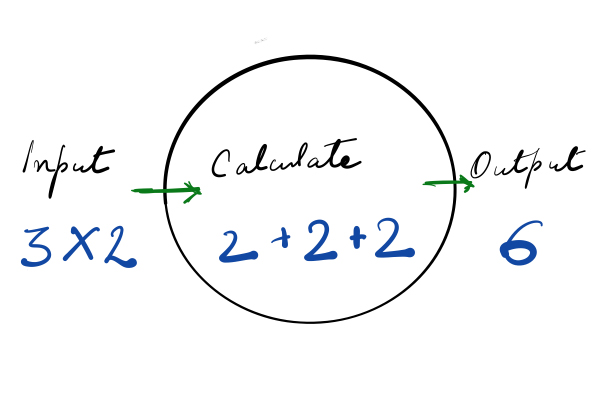 Input
3 X 2
Calculate
2 + 2 + 2
Output
6